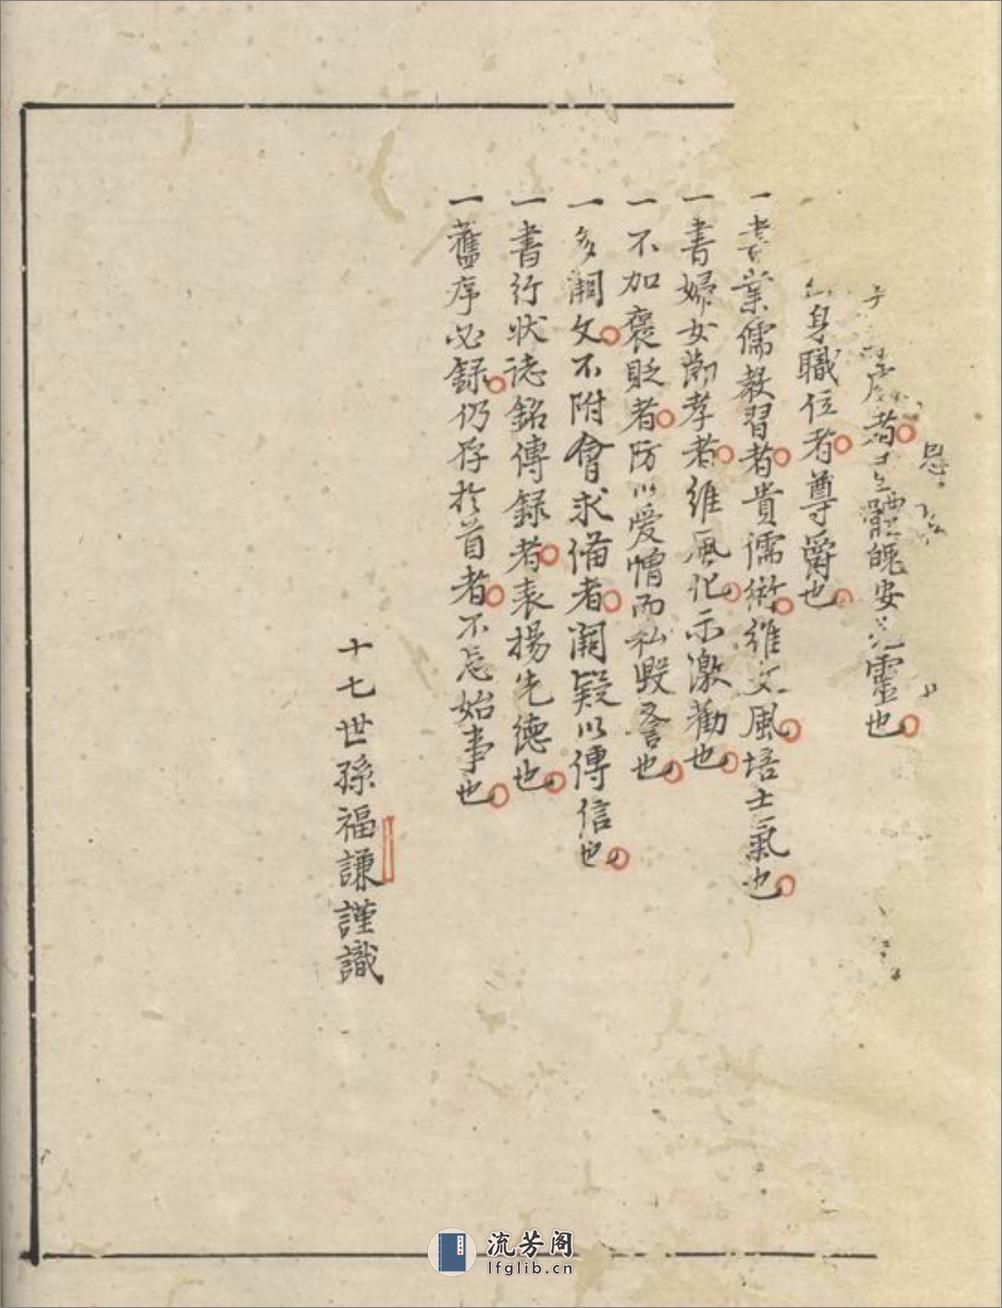 恩
處者 體魄安 靈也
身職位者尊爵也
一書業儒教習者貴儒術維文風培士氣也
一書婦女節孝者維風化示激勸也
一不加褒貶者防以愛憎而私毀譽也
一多闕文不附會求備者闕疑以傳信也
一書行状誌銘傳録者表揚先德也
一舊序必録仍存於首者不忘始事也
十七世孫福謙謹識
流芳阁
lfglib.cn